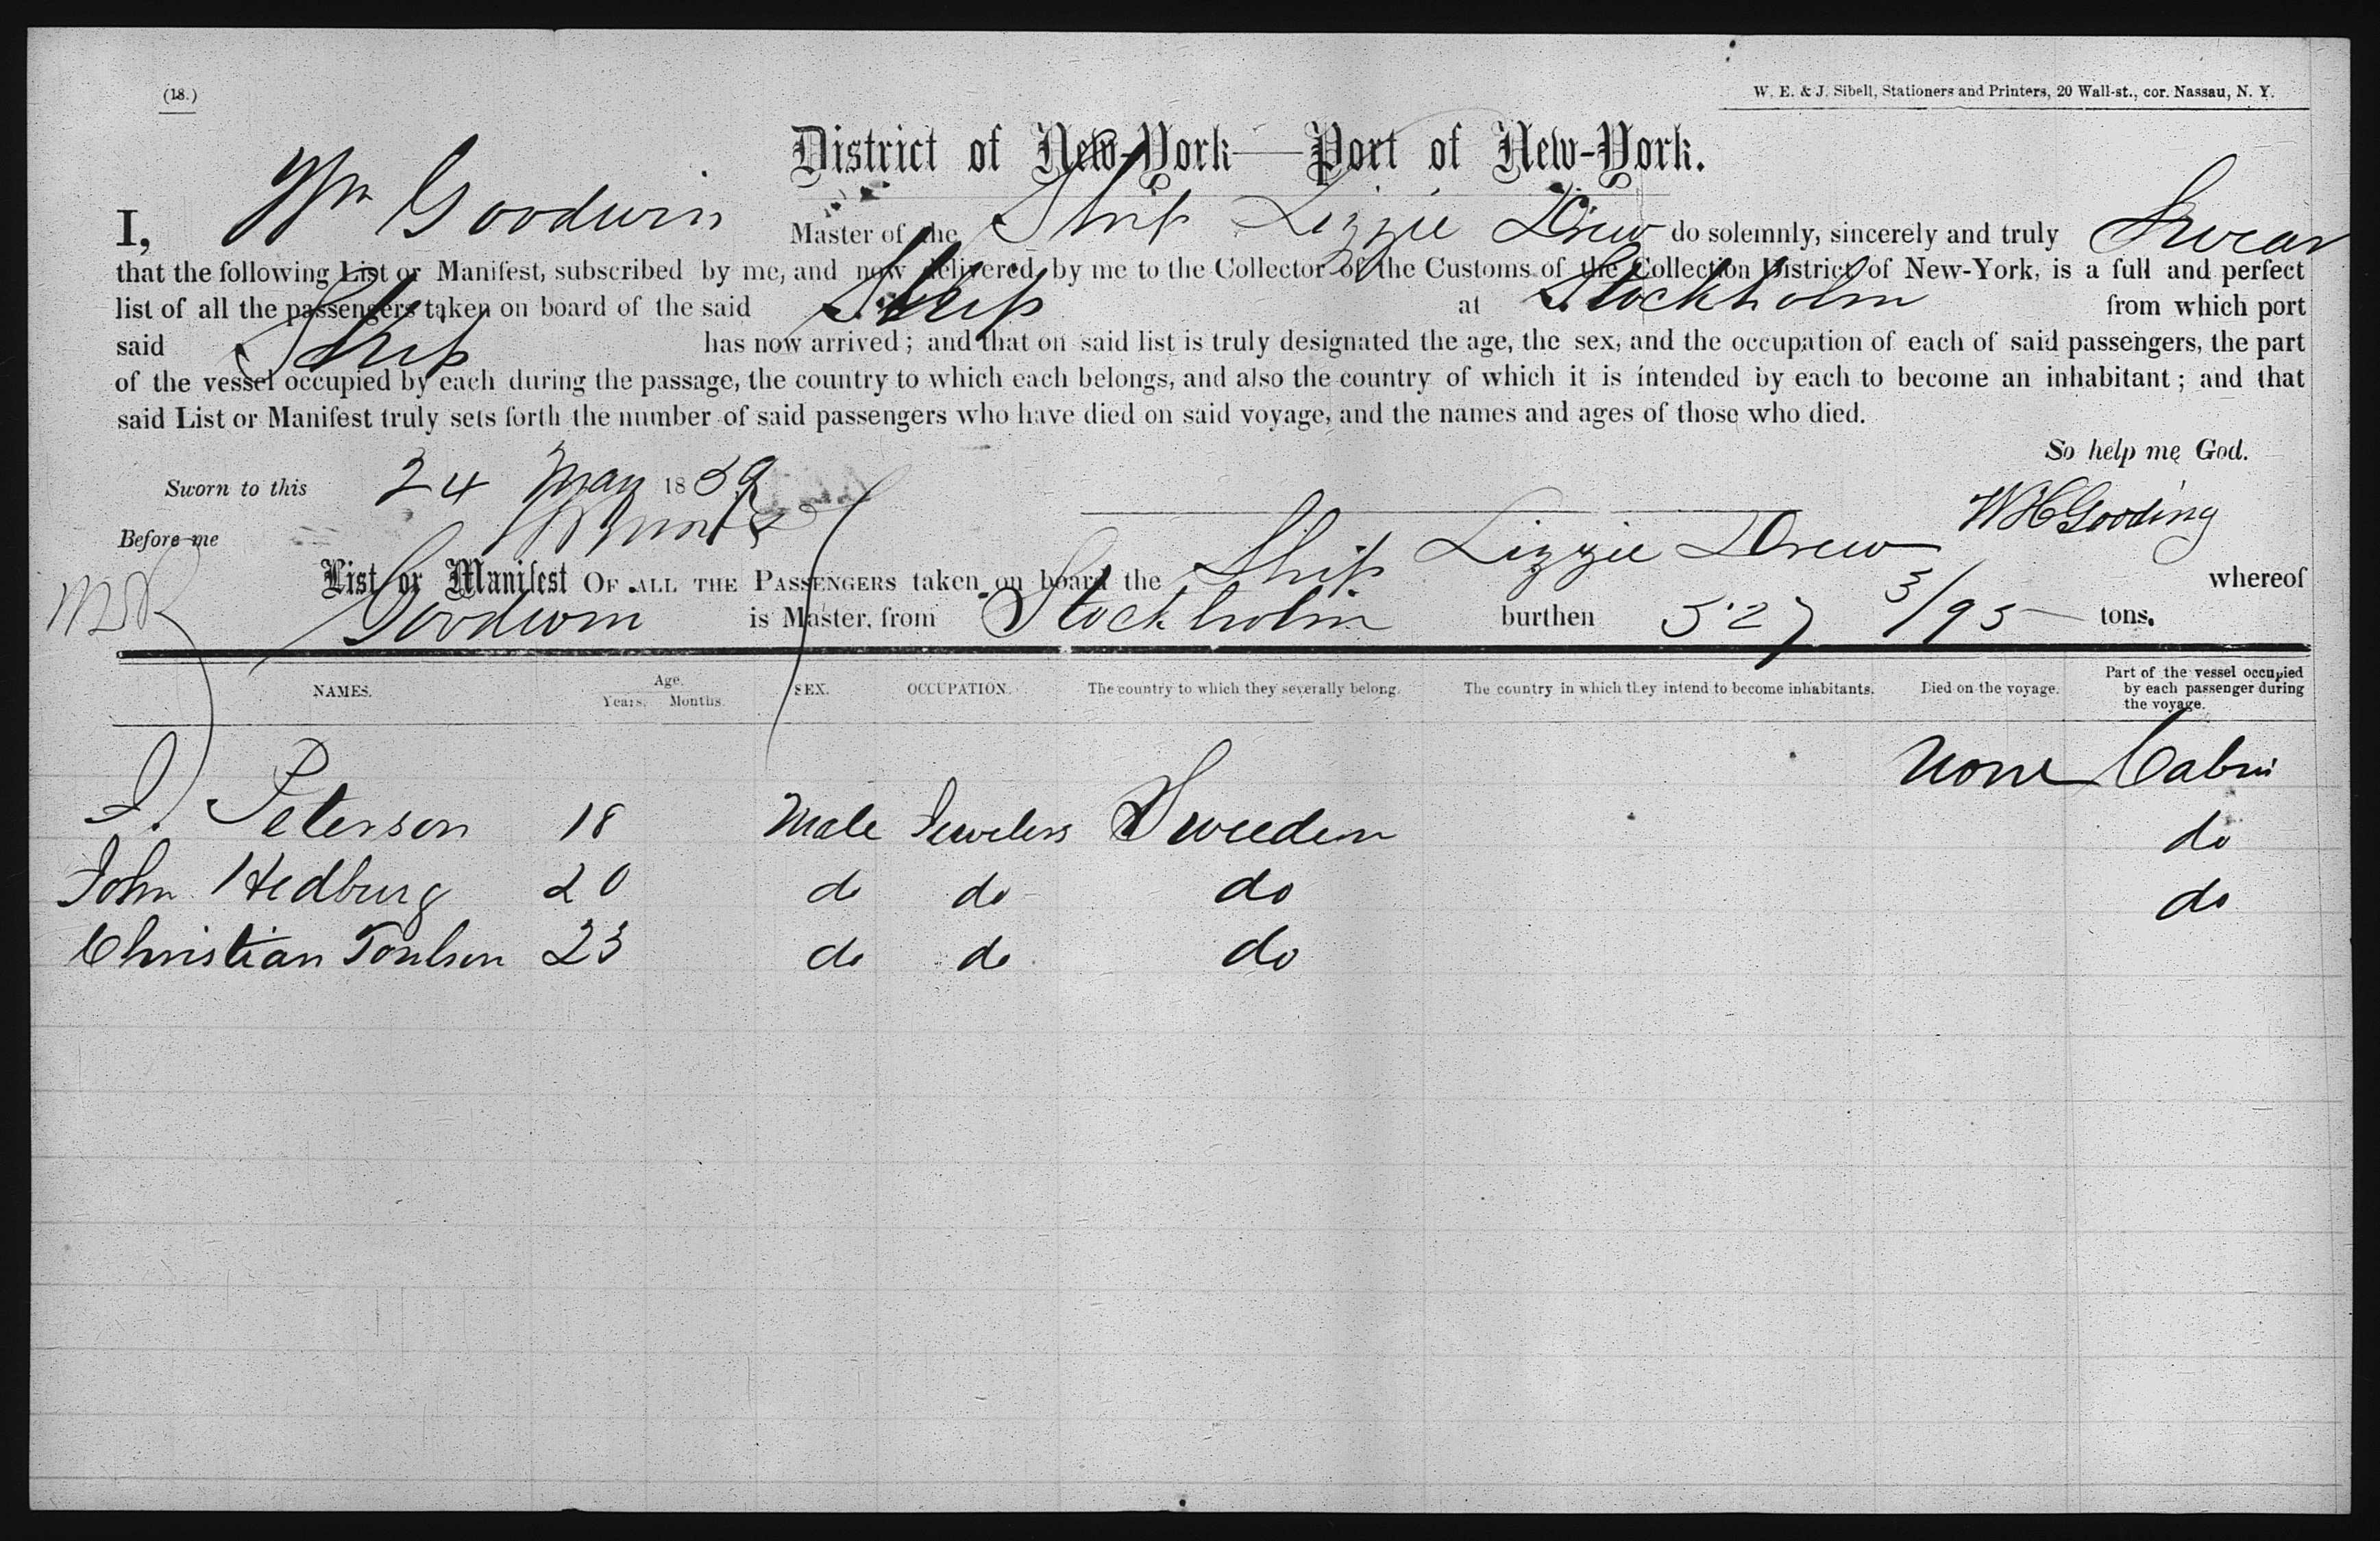 (18.)
W. E. & J. Sibell, Stationers and Printers, 20 Wall-st., cor. Nassau, N. Y.
District of New-York—Port of New-York.
I, Wm Goodwin Master of the Ship Lizzie Drew do solemnly, sincerely and truly Swear
that the following List or Manifest, subscribed by me, and now delivered by me to the Collector of the Customs of the Collection District of New-York, is a full and perfect
list of all the passengers taken on board of the said Ship at Stockholm from which port
said Ship has now arrived; and that on said list is truly designated the age, the sex, and the occupation of each of said passengers, the part
of the vessel occupied by each during the passage, the country to which each belongs, and also the country of which it is intended by each to become an inhabitant; and that
said List or Manifest truly sets forth the number of said passengers who have died on said voyage, and the names and ages of those who died.
So help me God.
Sworn to this 24 May 1859
Before me
W H Gooding
List or Manifest OF ALL THE PASSENGERS taken on board the Ship Lizzie Drew whereof
Goodwin is Master, from Stockholm burthen 527 3/95 tons.
NAMES. Age. Years. Months. SEX. OCCUPATION. The country to which they severally belong. The country in which they intend to become inhabitants. Died on the voyage. Part of the vessel occupied by each passenger during the voyage.
None Cabin
Peterson 18 Male Jewelers Sweeden do
John Hedburg 20 do do do do
Christian 23 do do do